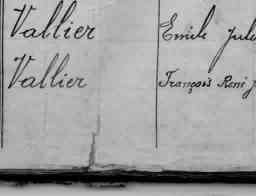 Vallier Emile Jule
Vallier François René J